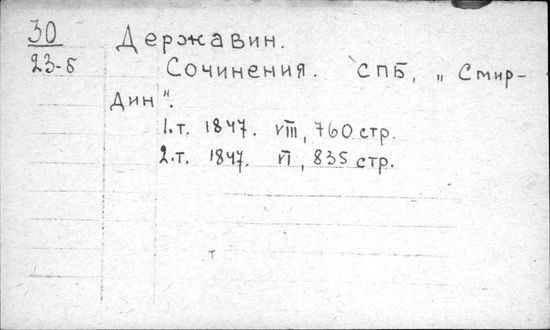 30
23-б
Державин.
Сочинения. СПБ, „Смир-
дин“.
1.т. 1847. VIII, 760 стр.
2.т. 1847. VI, 835 стр.